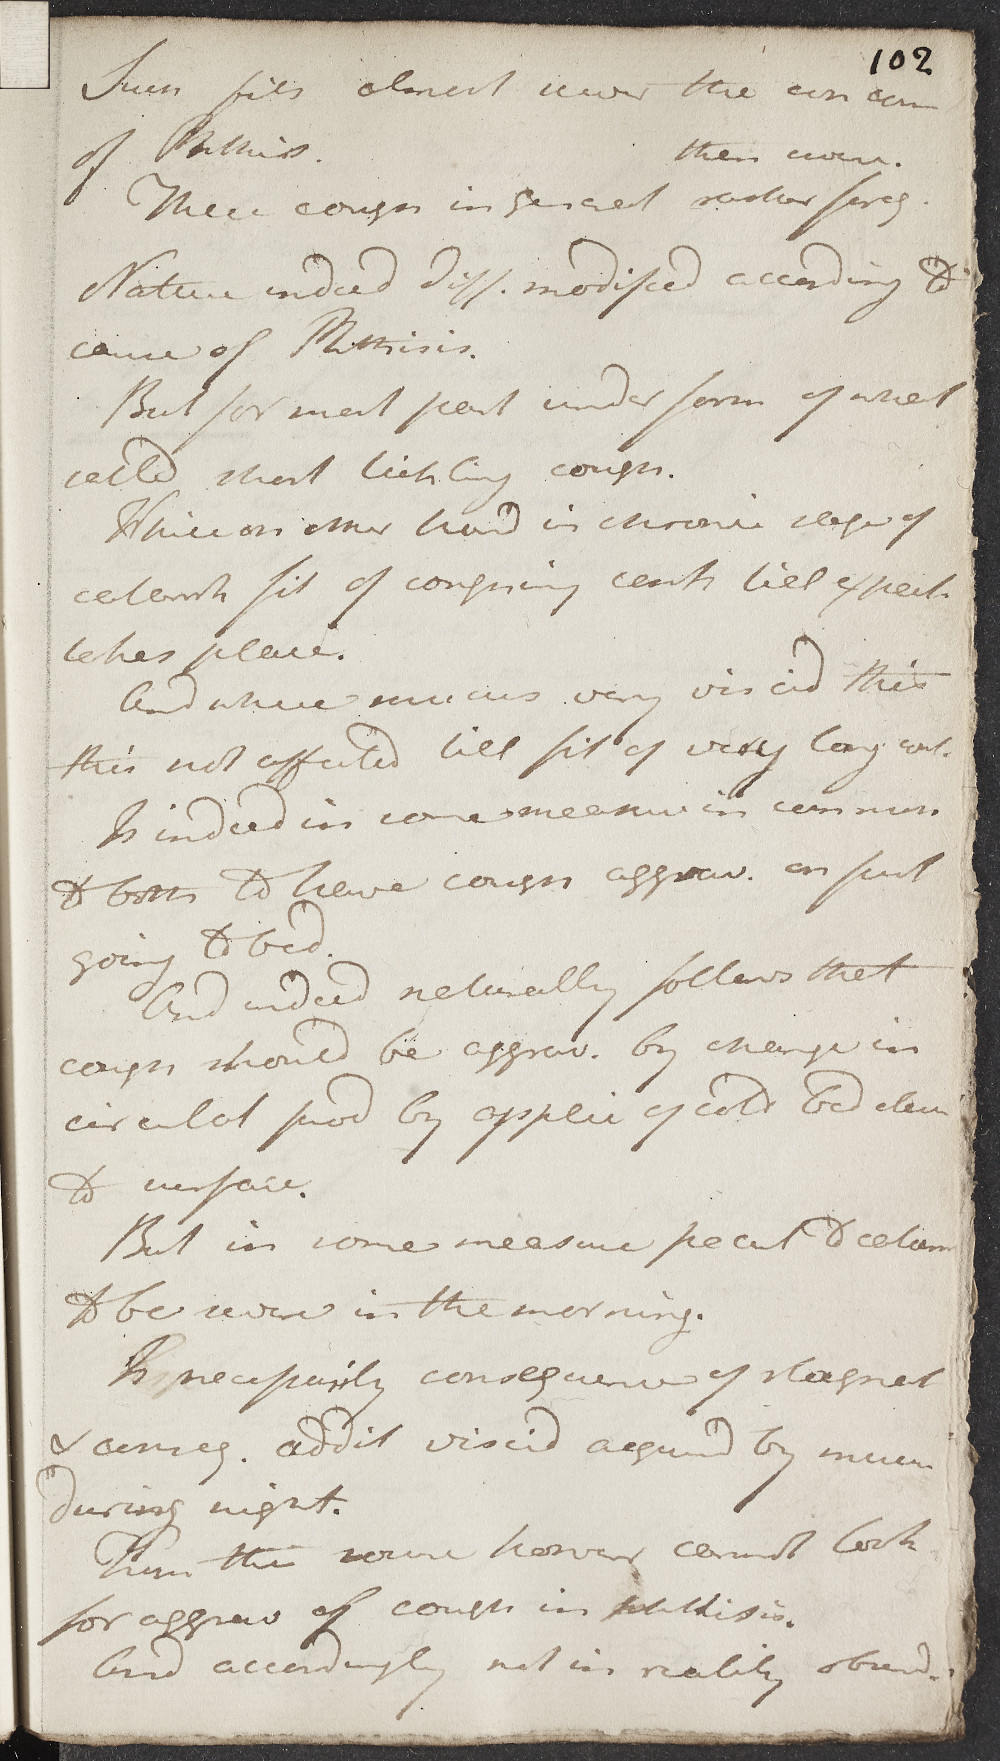 102
Such fits almost never the concom
of Phthisis.
then never.
There cough in general rather freq.
Nature indeed diff. modified according to
cause of Phthisis.
But for most part under form of what
called short tickling cough.
While on other hand in chronic stage of
catarrh fit of coughing conts till expect.
takes place.
And where mucus very viscid this
this not affected till fit of very long cont.
Is indeed in some measure in common
to both to have cough aggrav. on first
going to bed.
And indeed naturally follows that
cough should be aggrav. by change in
circulat prod by applic of cold bed cloa
to surface.
But in some measure pecul to catarrh
to be worse in the morning.
Is necessarily consequence of stagnat
& conseq. addit viscid acquird by mucus
during night.
From this source however cannot look
for aggrav of cough in phthisis.
And accordingly not in reality observd.